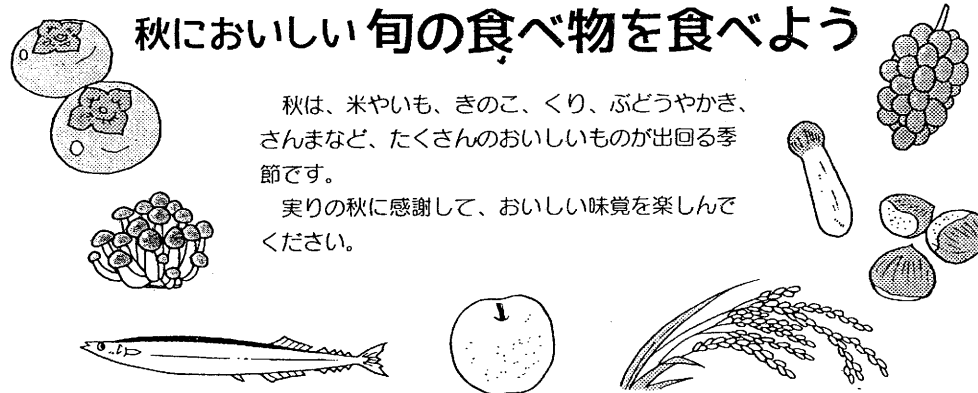 秋においしい 旬の食べ物を食べよう
　秋は、米やいも、きのこ、くり、ぶどうやかき、
さんまなど、たくさんのおいしいものが出回る季
節です。
　実りの秋に感謝して、おいしい味覚を楽しんで
ください。